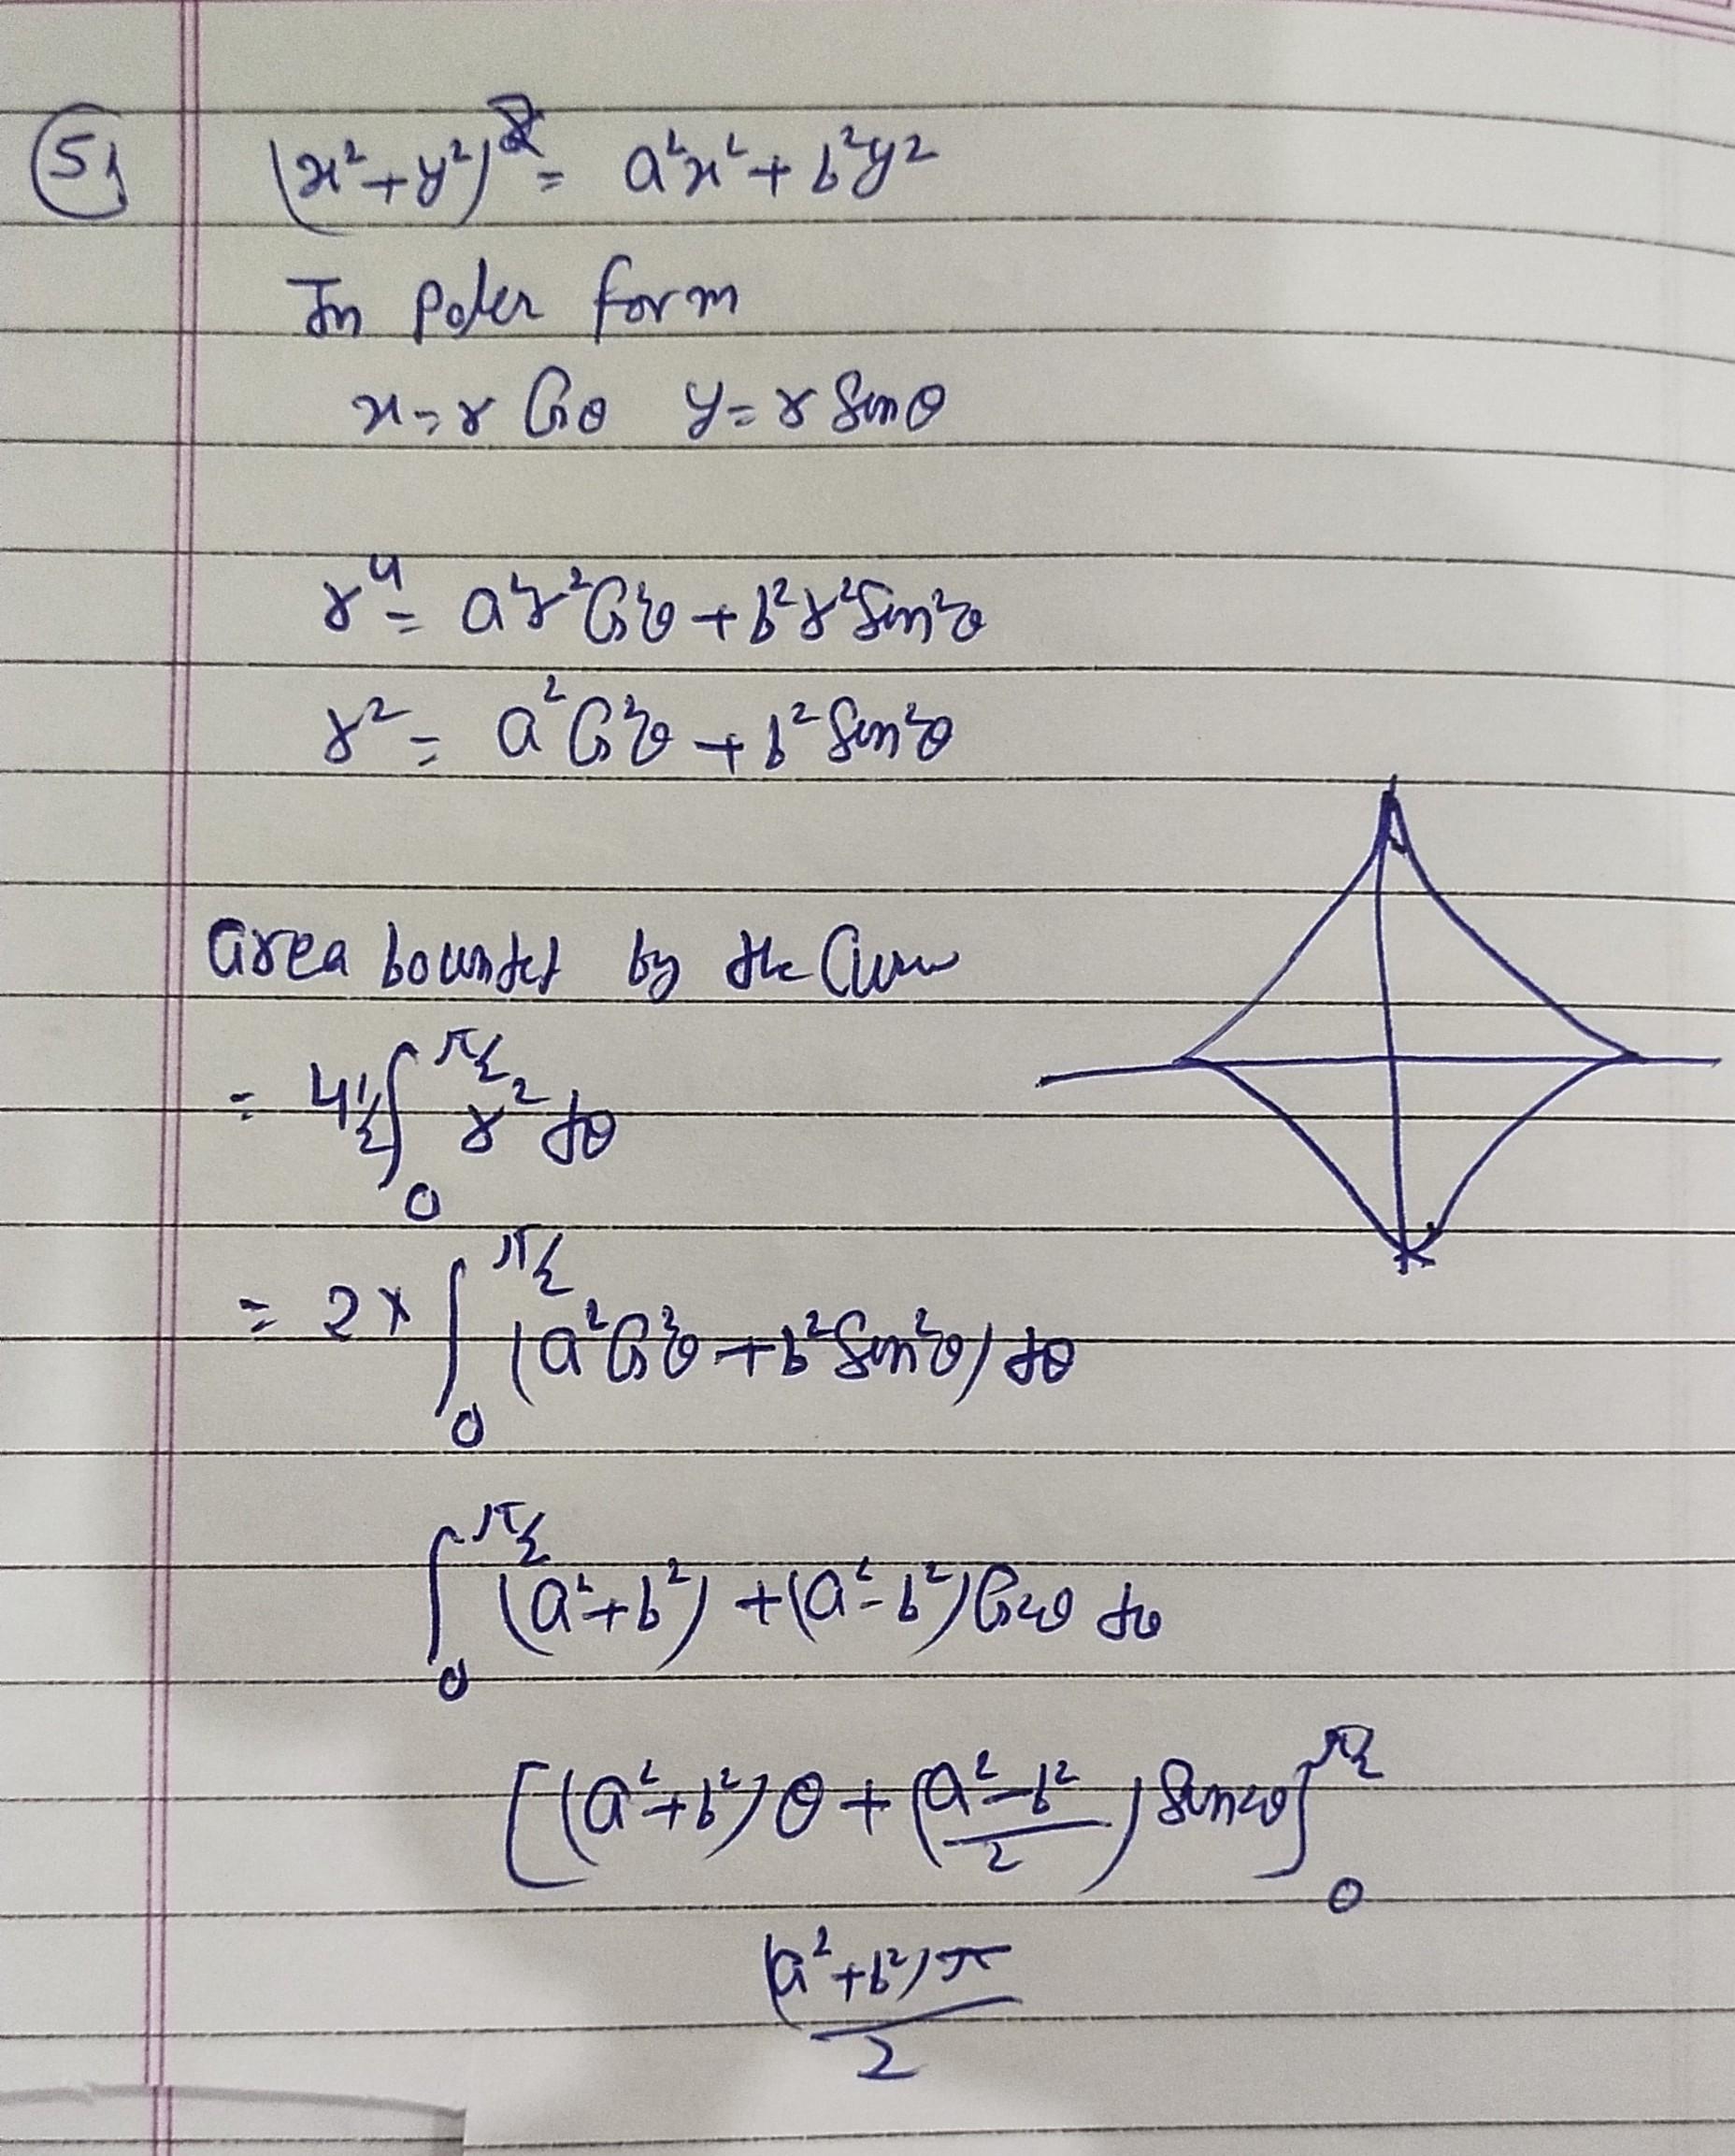 5) (x²+y²)² = a²x² + b²y²
In Poler form
x = r Cosθ y = r Sinθ
r⁴ = a²r²Cos²θ + b²r²Sin²θ
r² = a²Cos²θ + b²Sin²θ
area bounded by the Curve
= 4 1/2 ∫₀^{π/2} r² dθ
= 2 × ∫₀^{π/2} (a²Cos²θ + b²Sin²θ) dθ
∫₀^{π/2} (a²+b²) + (a²-b²)Cos2θ dθ
[(a²+b²)θ + (a²-b²/2) Sin2θ]₀^{π/2}
(a²+b²)π/2